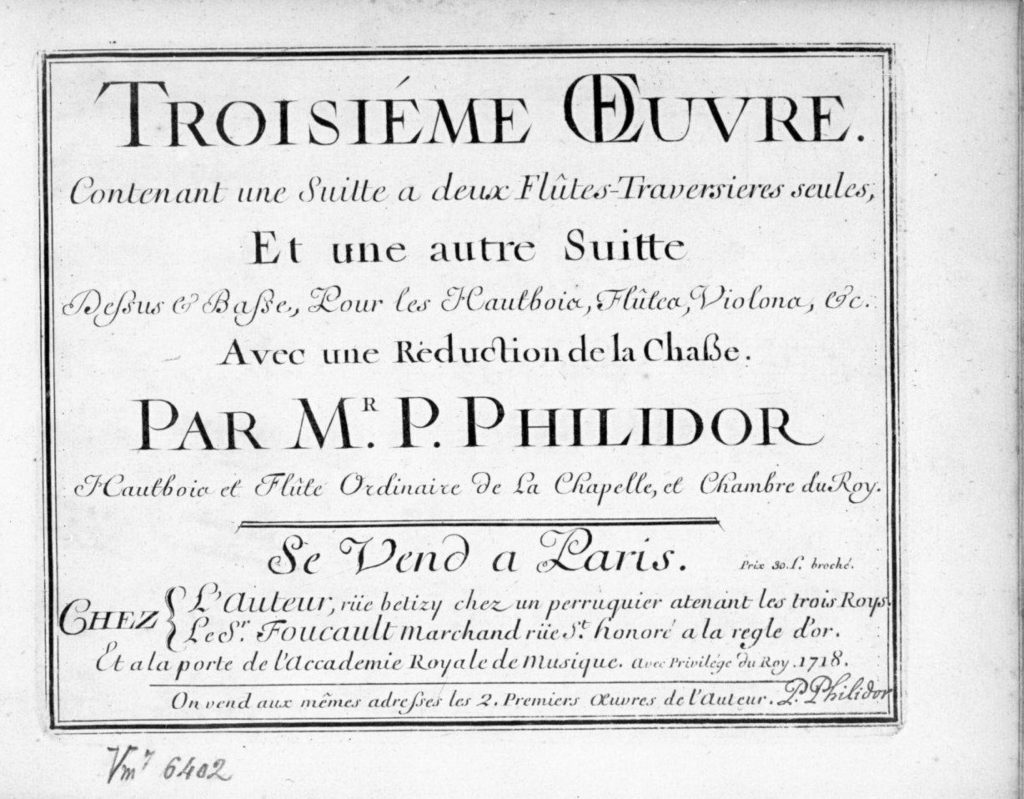 TROISIÉME ŒUVRE.
Contenant une Suitte a deux Flûtes-Traversieres seules,
Et une autre Suitte
Dessus & Basse, Pour les Hautbois, Flûtes, Violons, &c.
Avec une Réduction de la Chaße.
PAR MR. P. PHILIDOR
Hautbois et Flûte Ordinaire de La Chapelle, et Chambre du Roy.
Se Vend a Paris. Prix 30 s. broché.
CHEZ { L'Auteur, rüe betizy chez un perruquier atenant les trois Roys.
Le Sr. Foucault Marchand rüe St. honoré a la regle d'or.
Et a la porte de l'Accademie Royale de Musique. Avec Privilége du Roy. 1718.
On vend aux mêmes adresses les 2. Premiers Œuvres de l'Auteur. P. Philidor
Vm7 6402